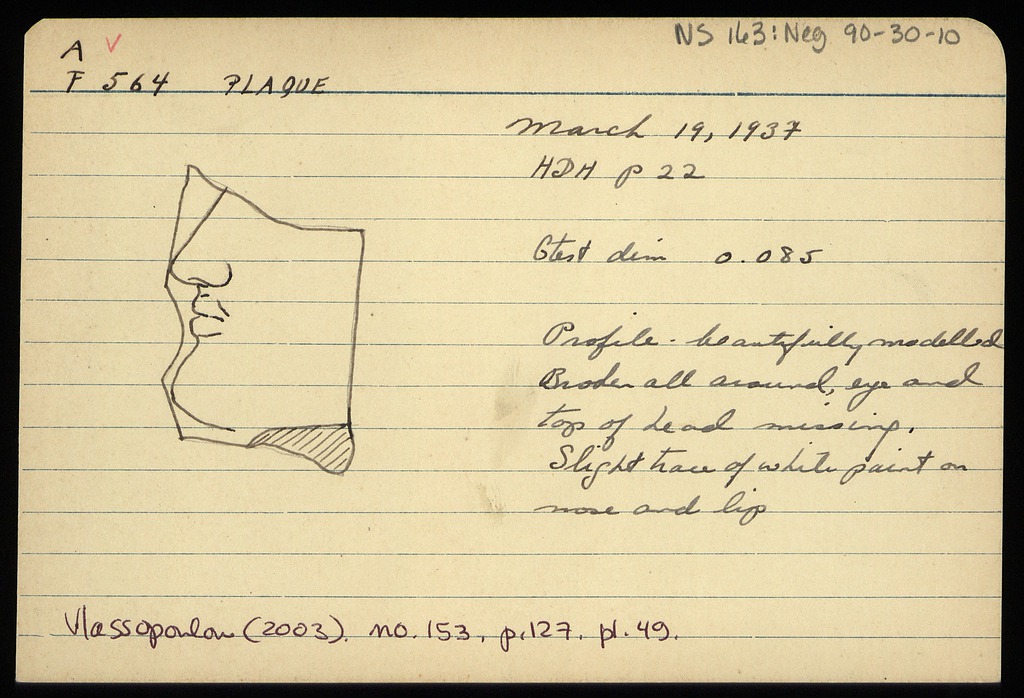 NS 163: Neg 90-30-10
A ✓
F 564 PLAQUE
March 19, 1937
HDH p 22
Gtest dim 0.085
Profile - beautifully modelled
Broken all around, eye and
top of head missing.
Slight trace of white paint on
nose and lip
Vlassopoulou (2003). no. 153, p. 127. pl. 49.